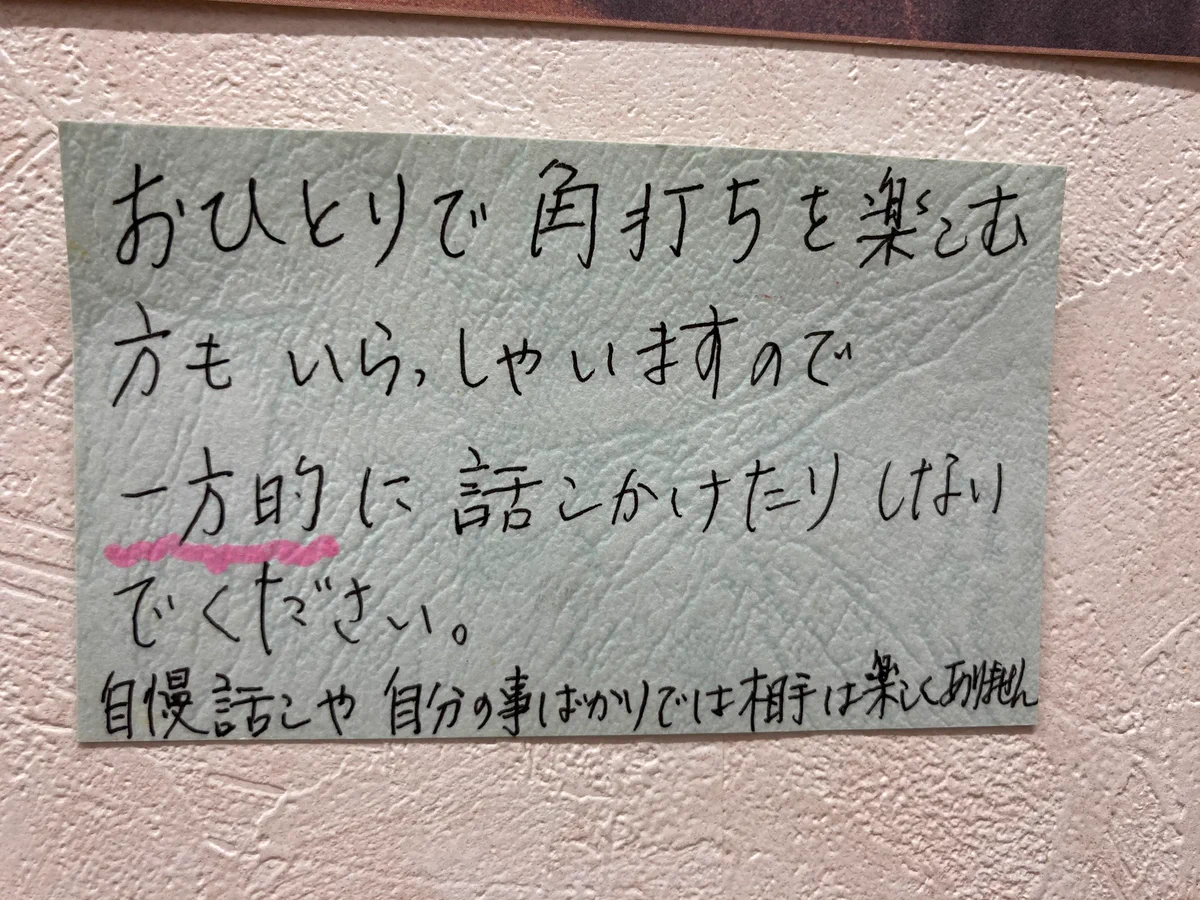 おひとりで角打ちを楽しむ
方もいらっしゃいますので
一方的に話しかけたりしない
でください。
自慢話しや自分の事ばかりでは相手は楽しくありません